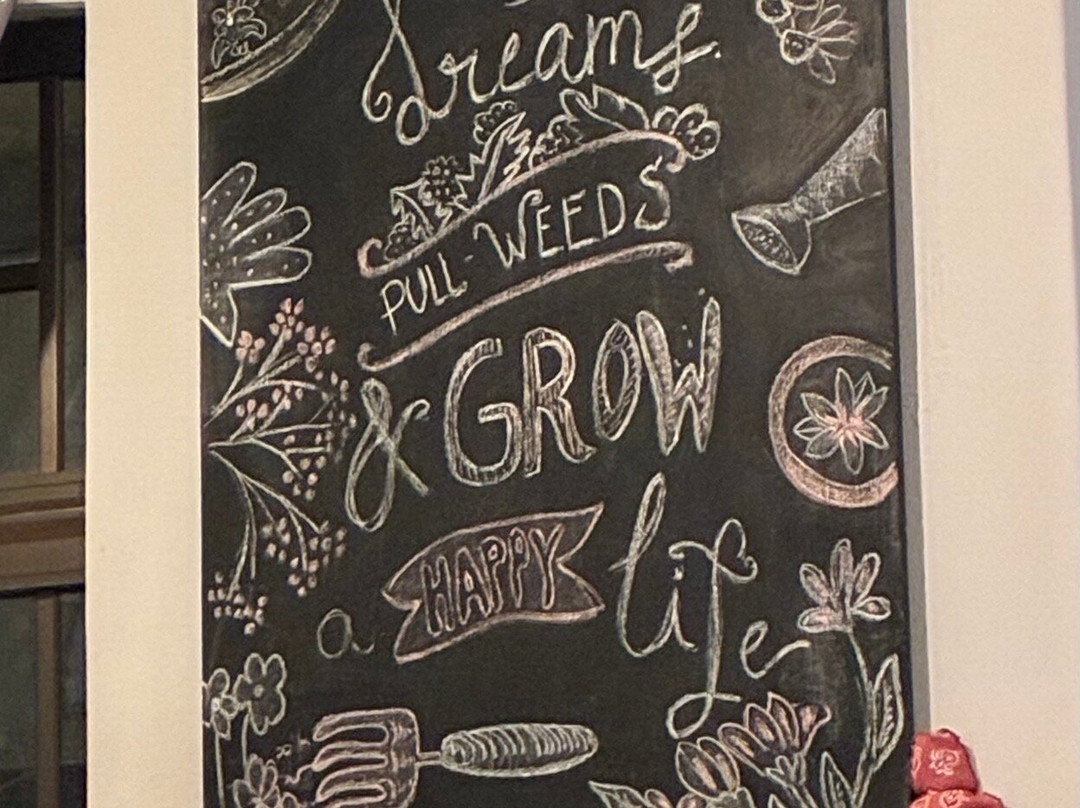 Dreams
PULL-WEEDS
& GROW
a HAPPY life